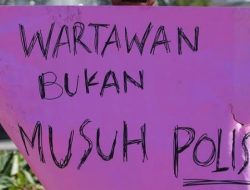 WARTAWAN
BUKAN
MUSUH POLIS